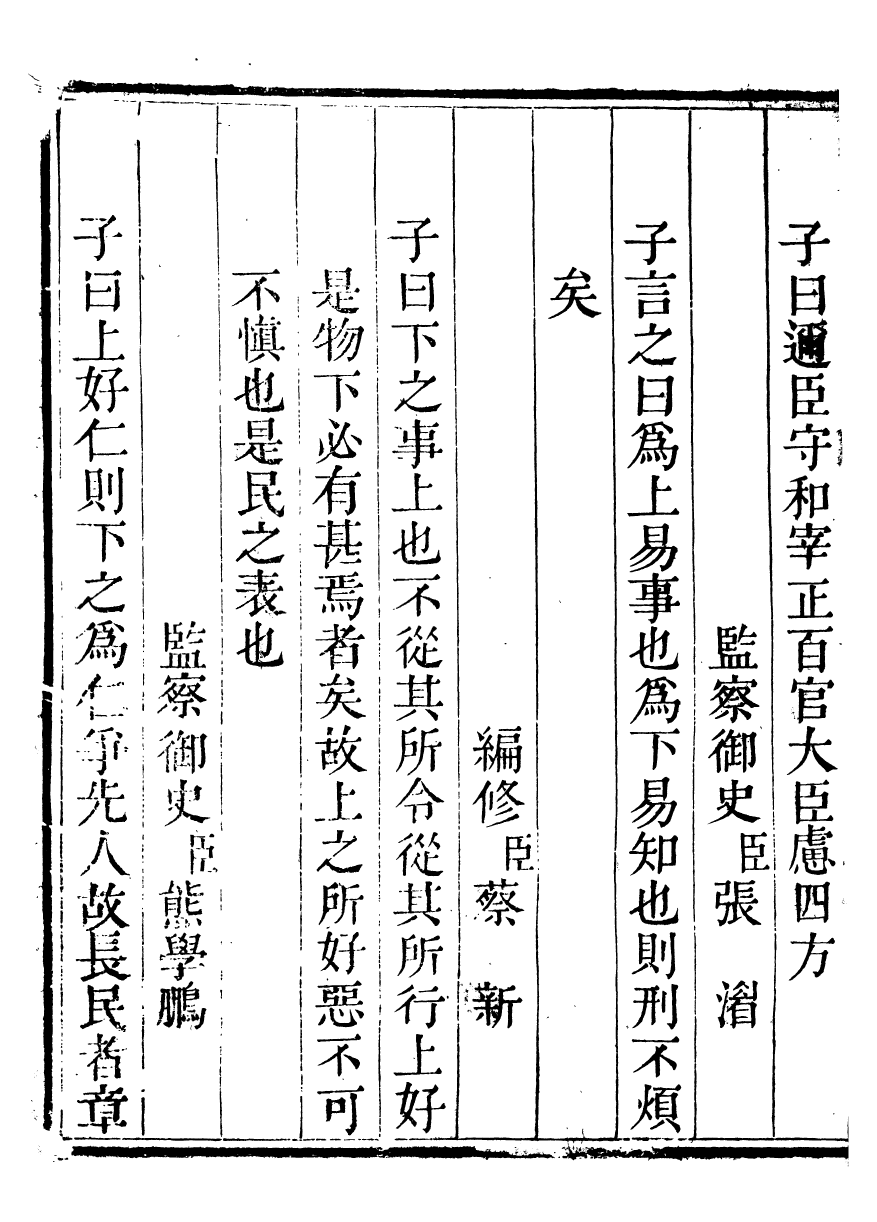 子曰邇臣守和宰正百官大臣慮四方
監察御史臣張湽
子言之曰爲上易事也爲下易知也則刑不煩
矣
編修臣蔡新
子曰下之事上也不從其所令從其所行上好
是物下必有甚焉者矣故上之所好惡不可
不慎也是民之表也
監察御史臣熊學鵬
子曰上好仁則下之爲仁爭先人故長民者章